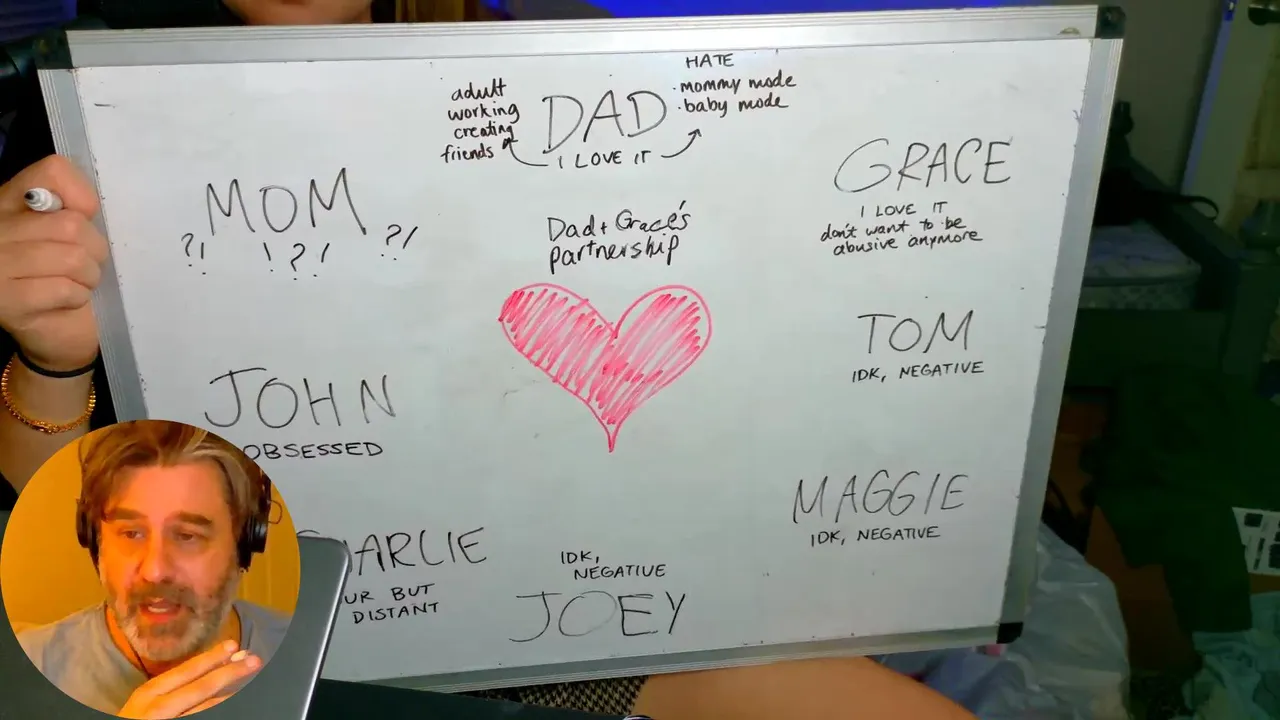 HATE
· mommy mode
· baby mode
adult
working
creating
friends
DAD
I LOVE IT
MOM
?! !?! ?!
GRACE
I LOVE IT
don't want to be
abusive anymore
Dad + Grace's
partnership
TOM
IDK, NEGATIVE
JOHN
OBSESSED
MAGGIE
IDK, NEGATIVE
HARLIE
UR BUT
DISTANT
IDK,
NEGATIVE
JOEY